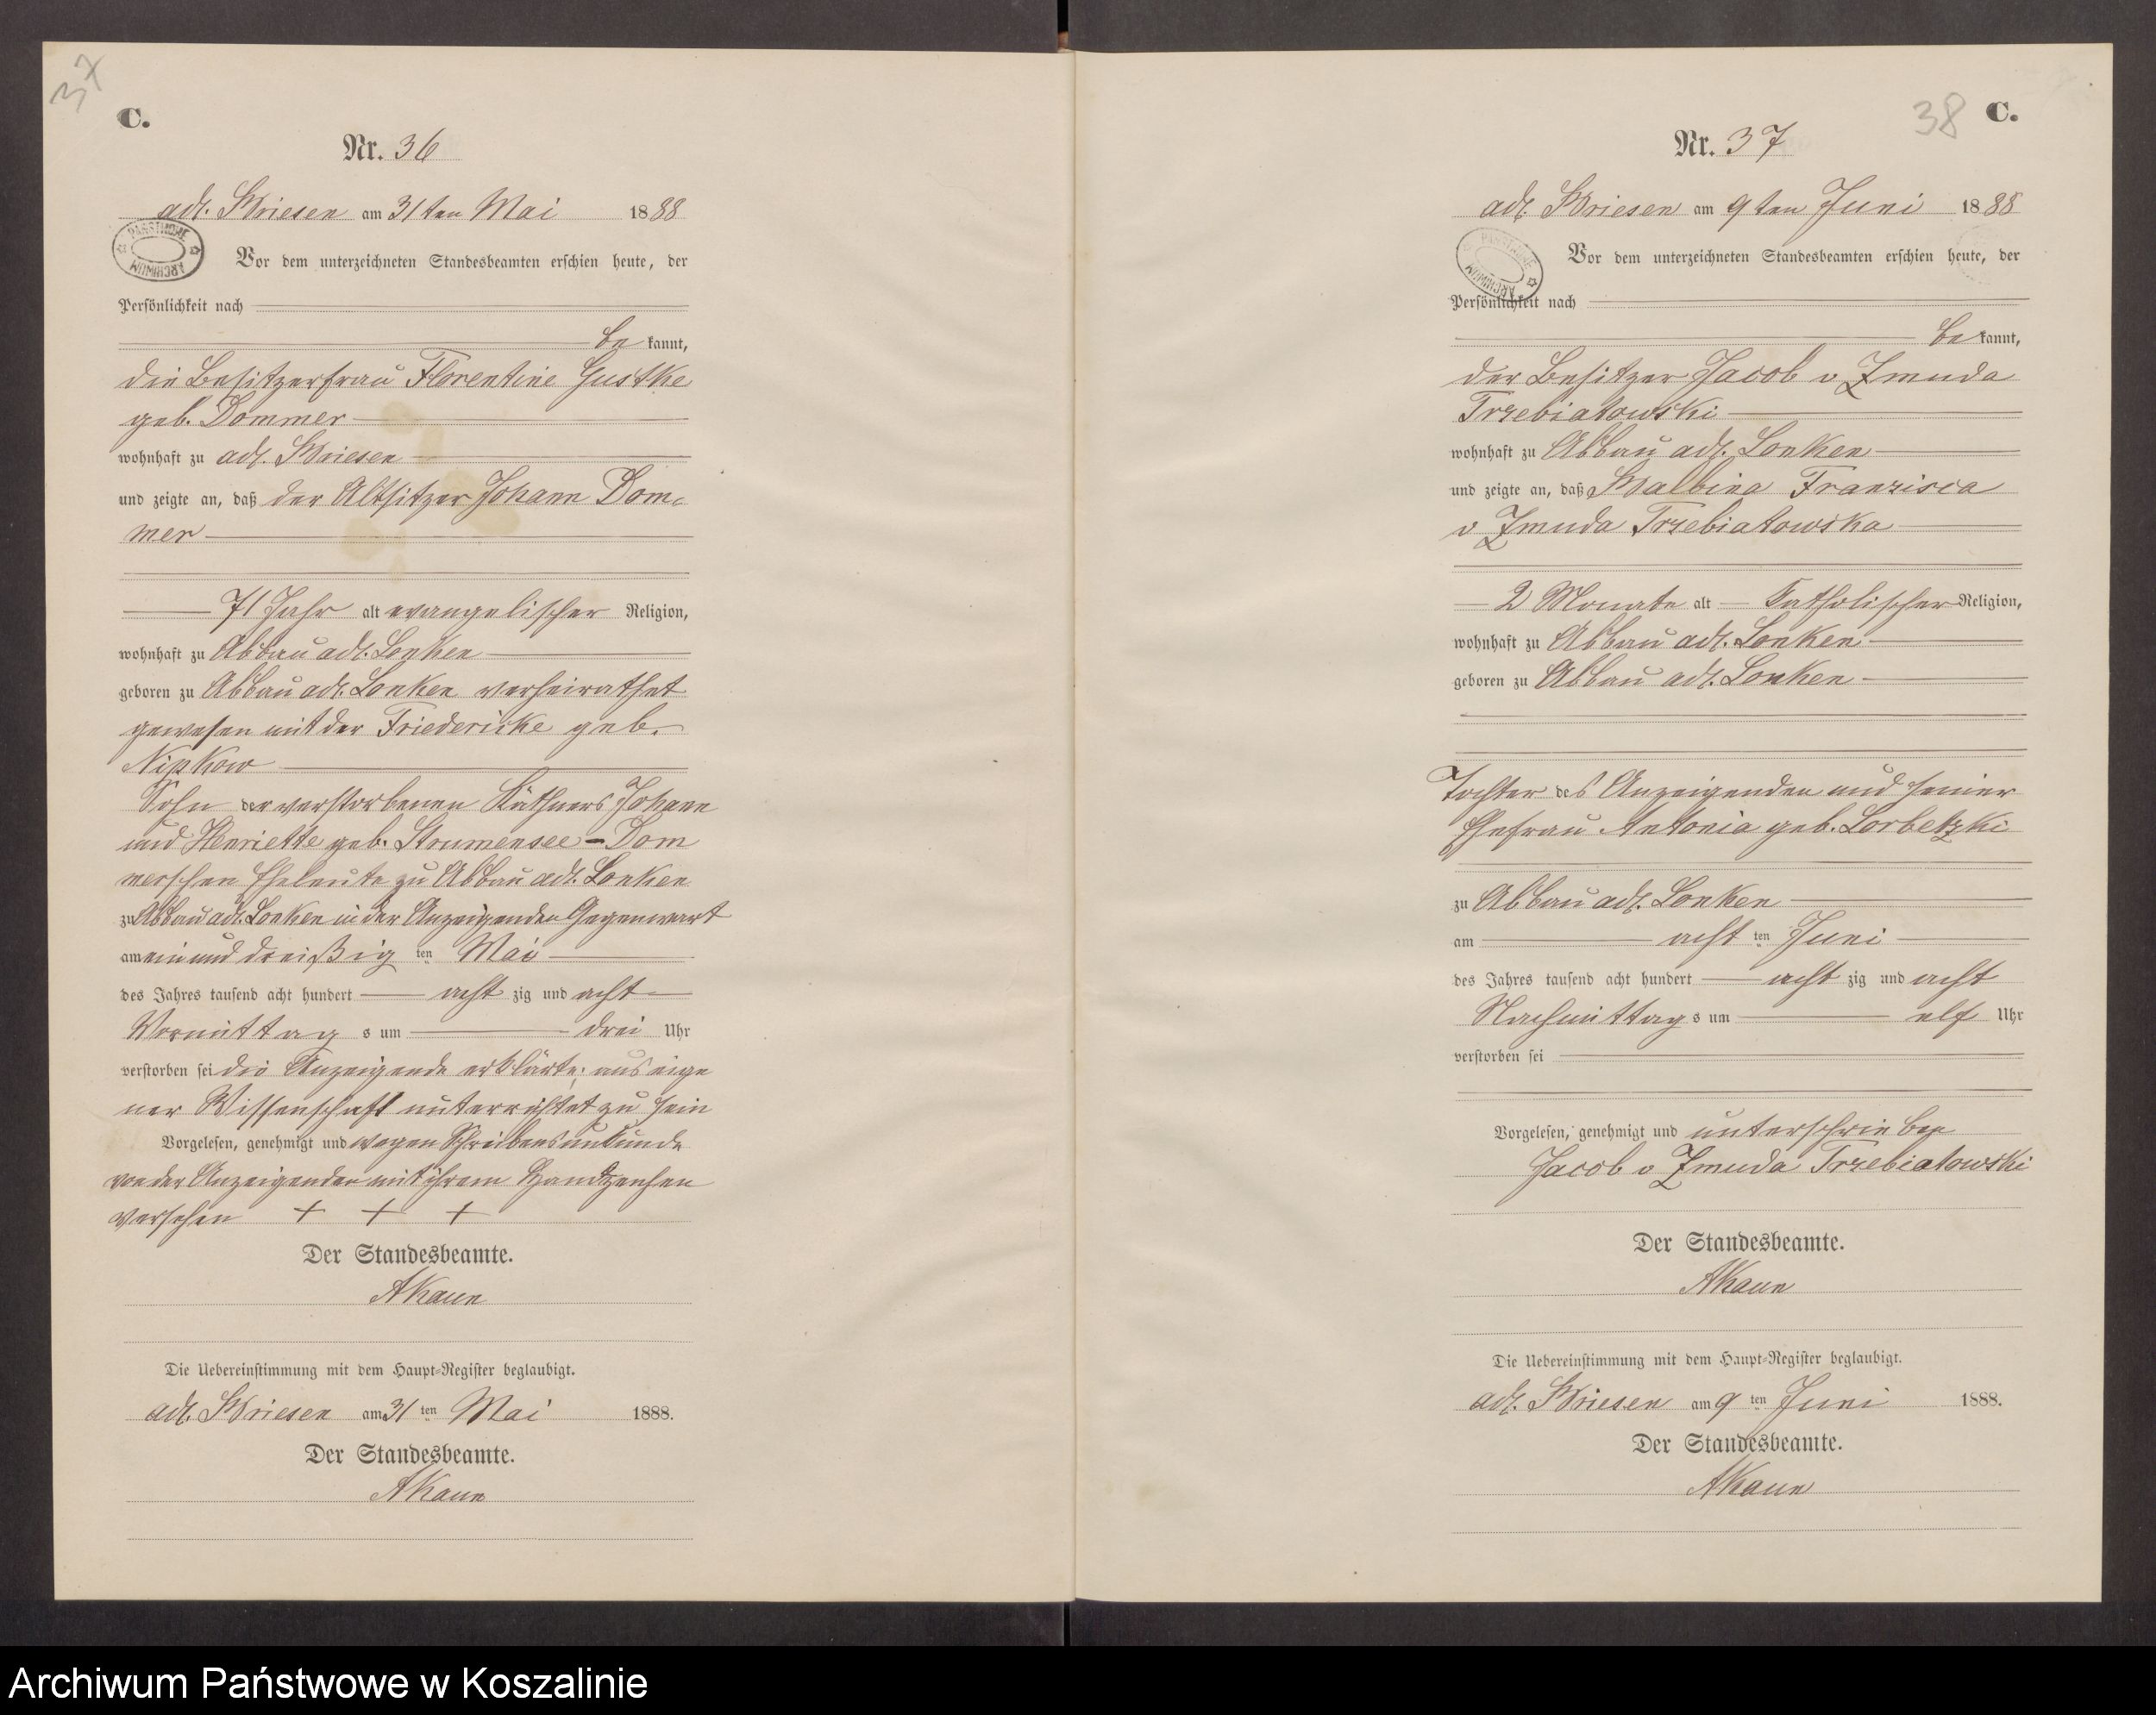 37
C.
Nr. 36
adl. Wriesen am 31ten Mai 1888
PAŃSTWOWE ARCHIWUM
Vor dem unterzeichneten Standesbeamten erschien heute, der
Persönlichkeit nach
be kannt,
die Besitzerfrau Florentine Gustke
geb. Dommer
wohnhaft zu adl. Wriesen
und zeigte an, daß der Altsitzer Johann Dom-
mer
71 Jahr alt evangelischer Religion,
wohnhaft zu Abbau adl. Lonken
geboren zu Abbau adl. Lonken verheirathet
gewesen mit der Friedericke geb.
Nipkow
Sohn der verstorbenen Käthners Johann
und Henriette geb. Strumensee - Dom
merschen Eheleute zu Abbau adl. Lonken
zu Abbau adl. Lonken in der Anzeigenden Gegenwart
am ein und dreißig ten Mai
des Jahres tausend acht hundert acht zig und acht
Vormittag s um drei Uhr
verstorben sei die Anzeigende erklärte; aus eige
ner Wissenschaft unterrichtet zu sein
Vorgelesen, genehmigt und wegen Schreibensunkunde
von der Anzeigenden mit ihrem Handzeichen
versehen + + +
Der Standesbeamte.
AKaun
Die Uebereinstimmung mit dem Haupt-Register beglaubigt.
adl. Wriesen am 31 ten Mai 1888.
Der Standesbeamte.
AKaun
38 C.
Nr. 37
adl. Wriesen am 9ten Juni 1888
PAŃSTWOWE ARCHIWUM
Vor dem unterzeichneten Standesbeamten erschien heute, der
Persönlichkeit nach
be kannt,
der Besitzer Jacob v Zmuda
Trzebiatowski
wohnhaft zu Abbau adl. Lonken
und zeigte an, daß Walbina Franzisca
v Zmuda Trzebiatowska
2 Monate alt katholischer Religion,
wohnhaft zu Abbau adl. Lonken
geboren zu Abbau adl. Lonken
Tochter des Anzeigenden und seiner
Ehefrau Antonia geb. Lorbetzki
zu Abbau adl. Lonken
am acht ten Juni
des Jahres tausend acht hundert acht zig und acht
Nachmittag s um elf Uhr
verstorben sei
Vorgelesen, genehmigt und unterschrieben
Jacob v Zmuda Trzebiatowski
Der Standesbeamte.
AKaun
Die Uebereinstimmung mit dem Haupt-Register beglaubigt.
adl. Wriesen am 9 ten Juni 1888.
Der Standesbeamte.
AKaun
Archiwum Państwowe w Koszalinie